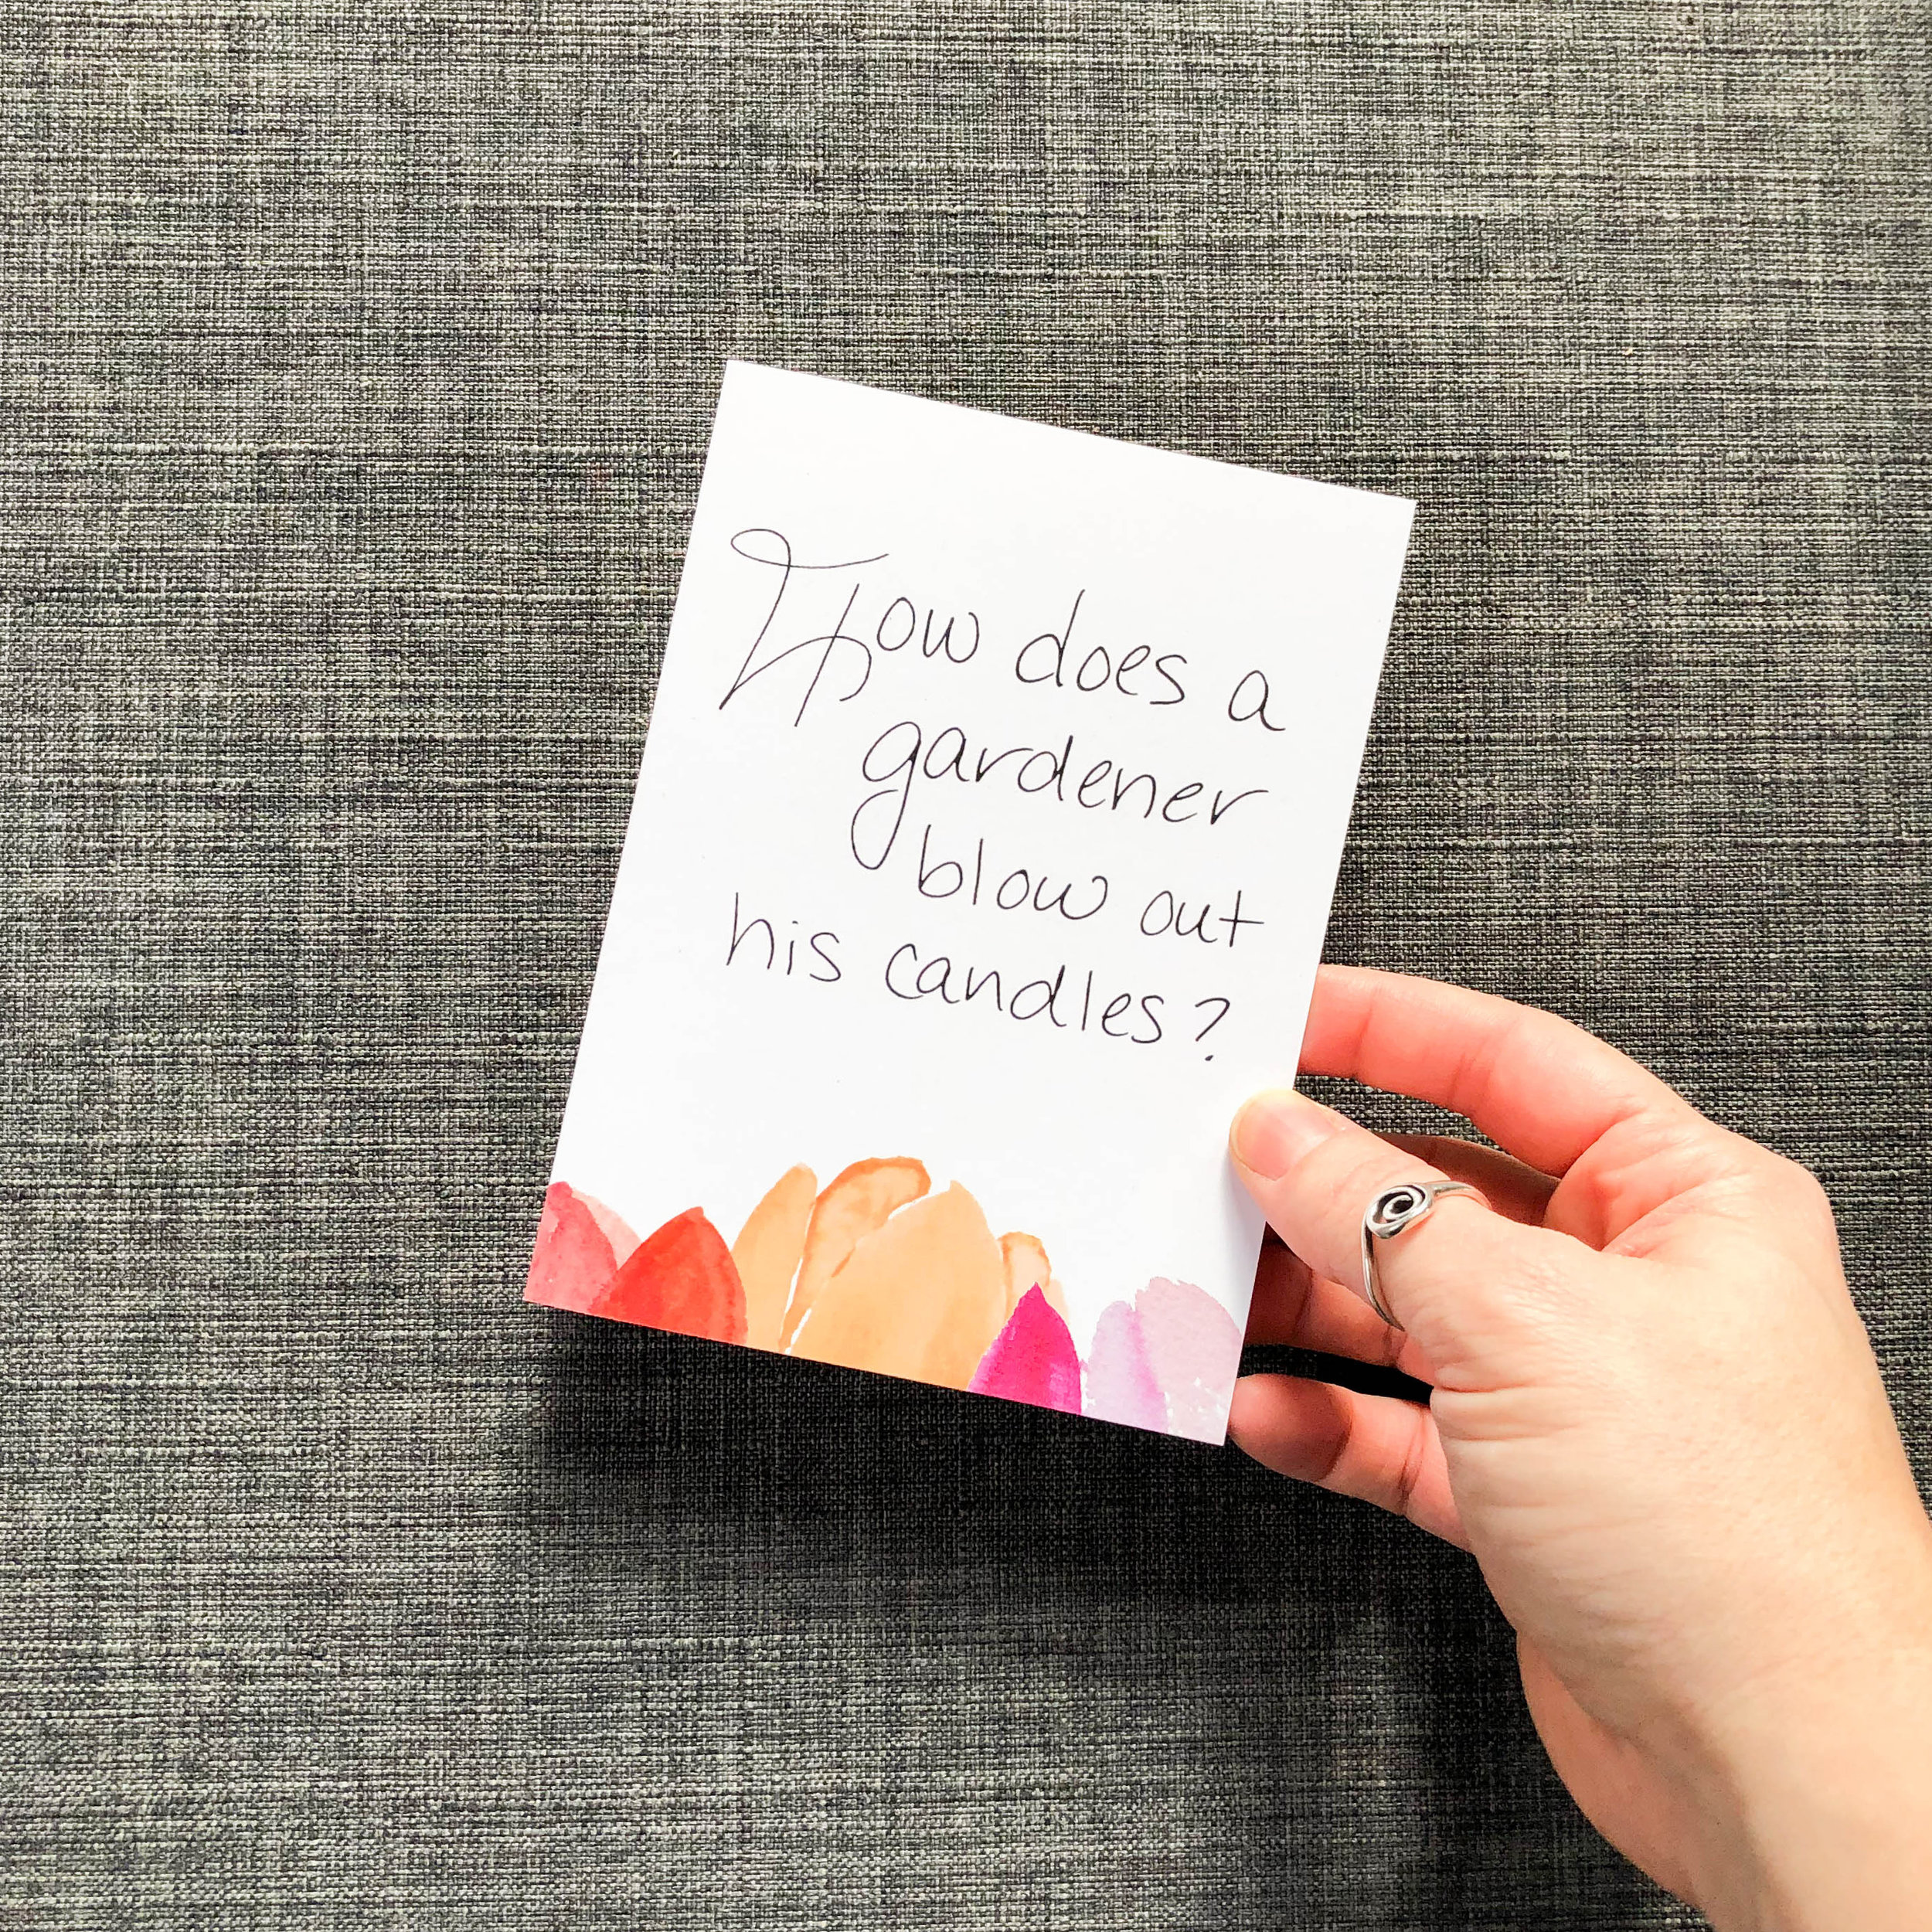 How does a
gardener
blow out
his candles?